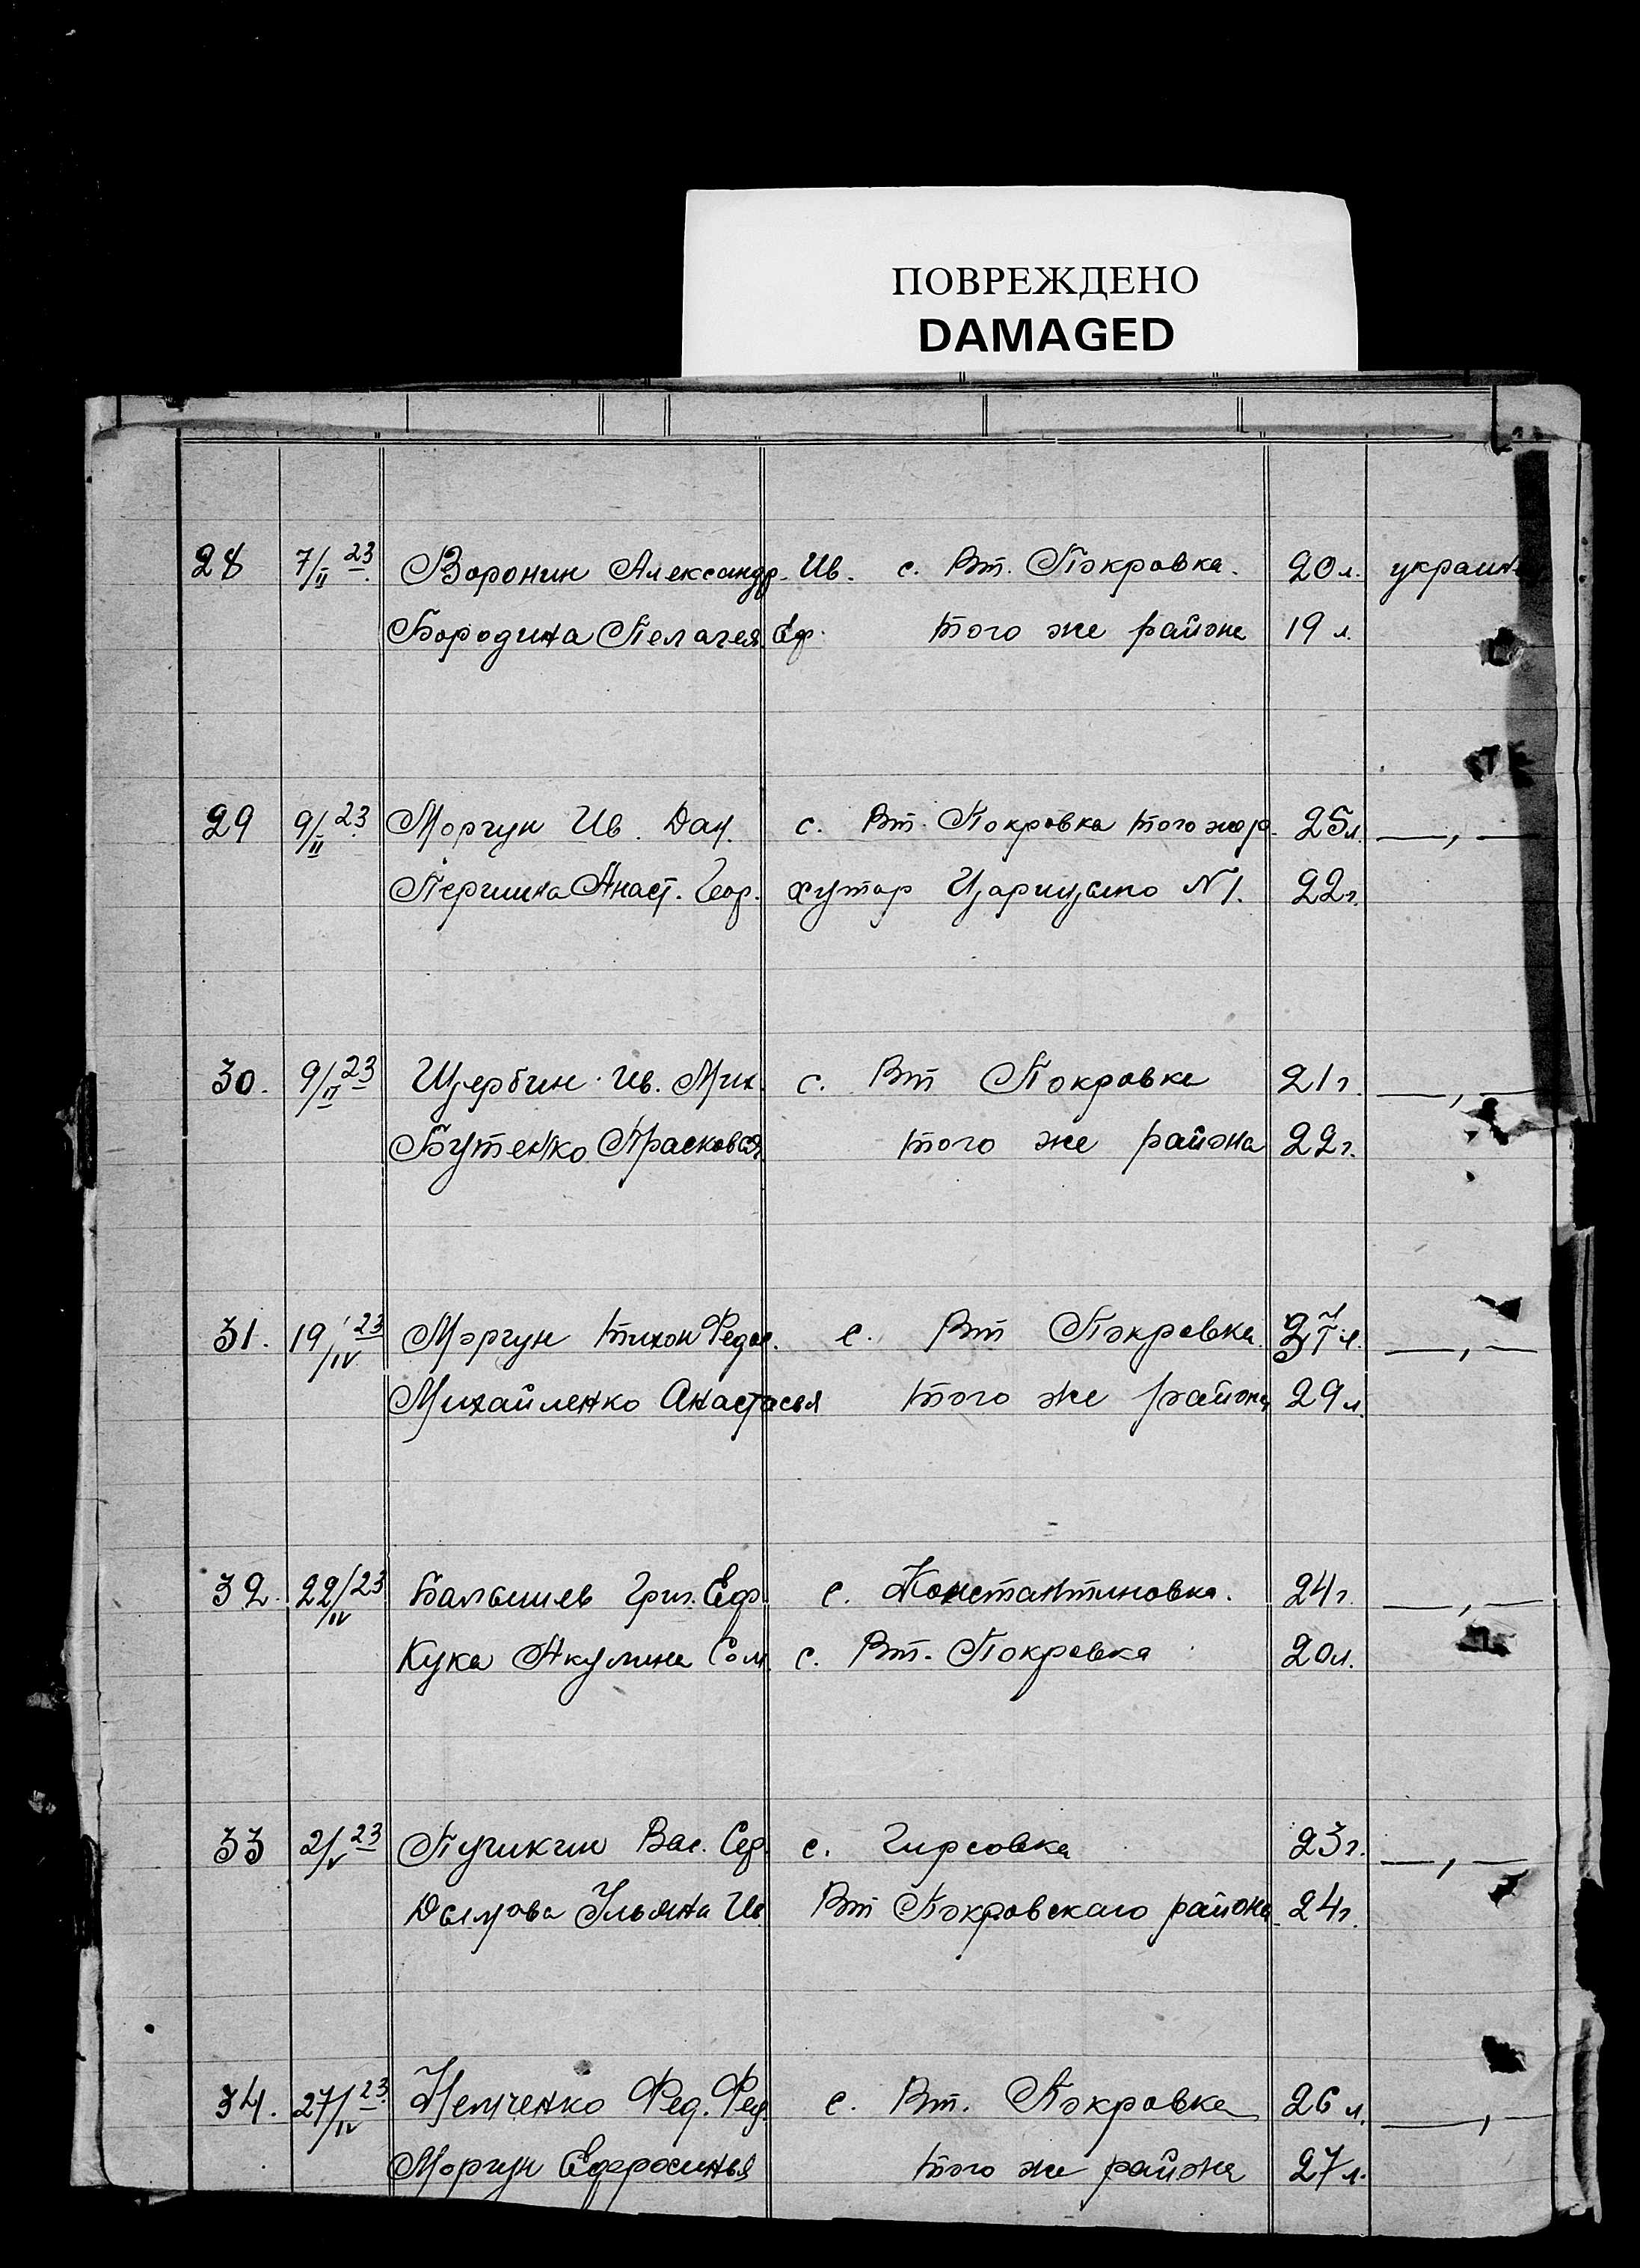 ПОВРЕЖДЕНО
DAMAGED
28 7/II 23 Воронин Александр. Ив. с. Вт. Покровка. 20 л. украин
Бородина Пелагея Еф. того же района 19 л.
29 9/II 23 Моргун Ив. Дан. с. Вт. Покровка того же р. 25 л. —„—
Першина Анаст. Геор. хутор Царицыно N 1. 22 г.
30. 9/II 23 Щербин Ив. Мих. с. Вт Покровка 21 г. —„—
Бутенко Прасковья. того же района 22 г.
31. 19/IV 23 Моргун Тихон Федос. с. Вт Покровка. л. —„—
Михайленко Анастасья того же района 29 л.
32. 22/IV 23 Григ. Еф. с. Константиновка. 24 г. —„—
Кука Акулина Сем. с. Вт. Покровка 20 л.
33 2/V 23 Вас. с. Гирсовка 23 г. —„—
Дымова Ульяна Ив Вт Покровскаго района 24 г.
34. 27/IV 23 Немченко Фед. Фед. с. Вт. Покровка 26 л. —„—
Моргун Ефросинья того же района 27 л.